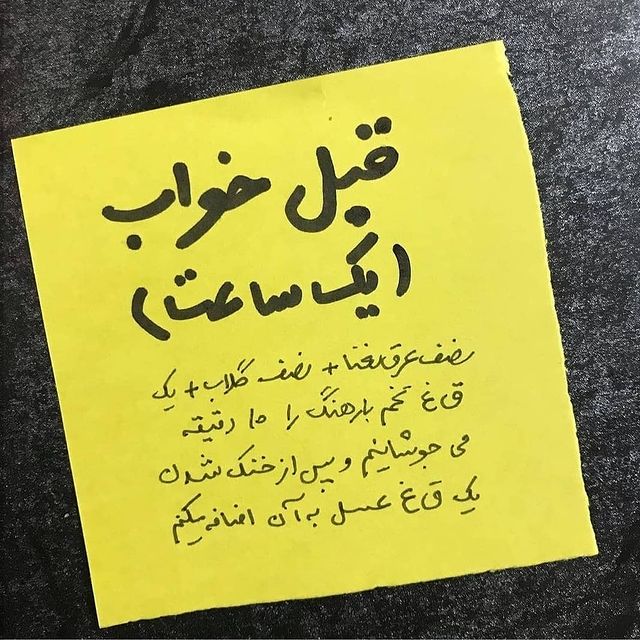 قبل خواب
(یک ساعت)
نصف عرق نعنا + نصف گلاب + یک
ق غ تخم بارهنگ را ۱۵ دقیقه
می جوشانیم و پس از خنک شدن
یک ق غ عسل به آن اضافه میکنیم